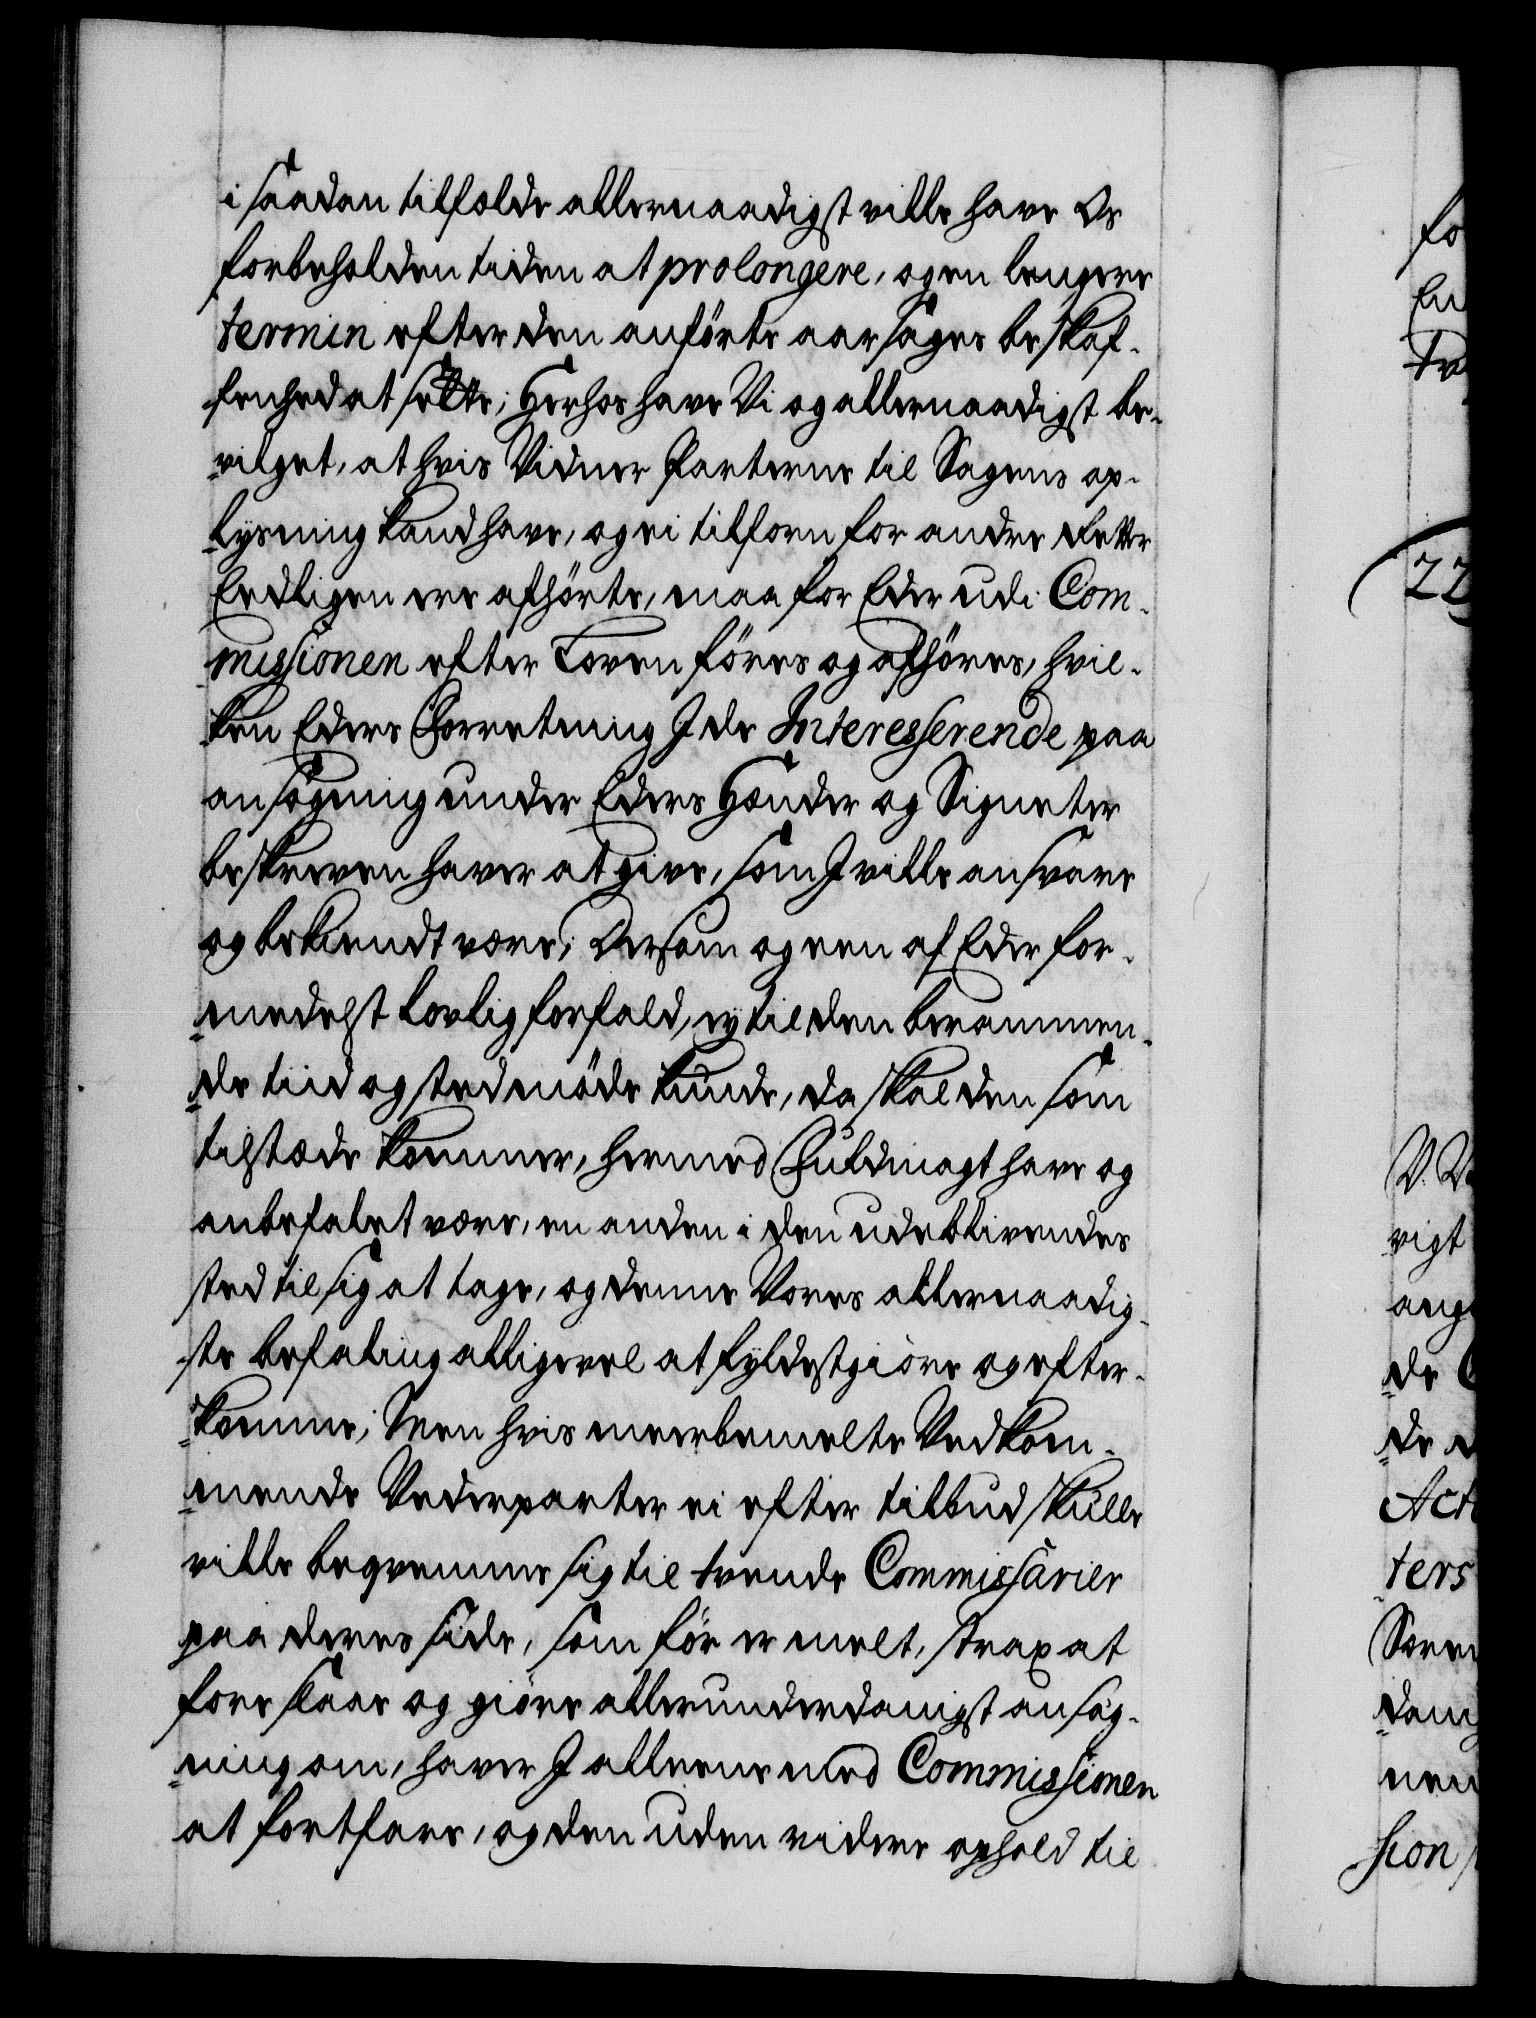 i saadan tilfælde allernaadigst ville have Os
forbeholden tiden at prolongere, og en længere
termin efter den anførte aarsages beskaf-
fenhed at sætte; Herhos have Vi og allernaadigst be-
vilget, at hvis Vidner Parterne til Sagens op-
lysning kand have, og ei tilforn for andre Retter
Eedligen ere afhørte, maa for Eder udi Com-
missionen efter Loven føres og afhøres, hvil-
ken Eders Forretning I de Interesserende paa
ansøgning under Eders Hænder og Signeter
beskreven haver at give, som I ville ansvare
og bekiendt være; Dersom og een af Eder for-
medelst lovlig forfald, ey til den berammen-
de tiid og sted møde kunde, da skal den som
tilstæde kommer, hermed Fuldmagt have og
anbefalet være, en anden i den udeblivendes
sted til sig at tage, og denne Vores allernaadig-
ste befaling alligevel at fyldestgiøre og efter-
komme; Men hvis meerbemelte Vedkom-
mende Vederparter ei efter tilbud skulle
ville beqvemme sig til tvende Commissarier
paa deres side, som før er melt, strax at
fore slaae og giøre allerunderdanigst ansøg-
ning om, haver I alleene med Commissionen
at fortfare, og den uden videre ophold til